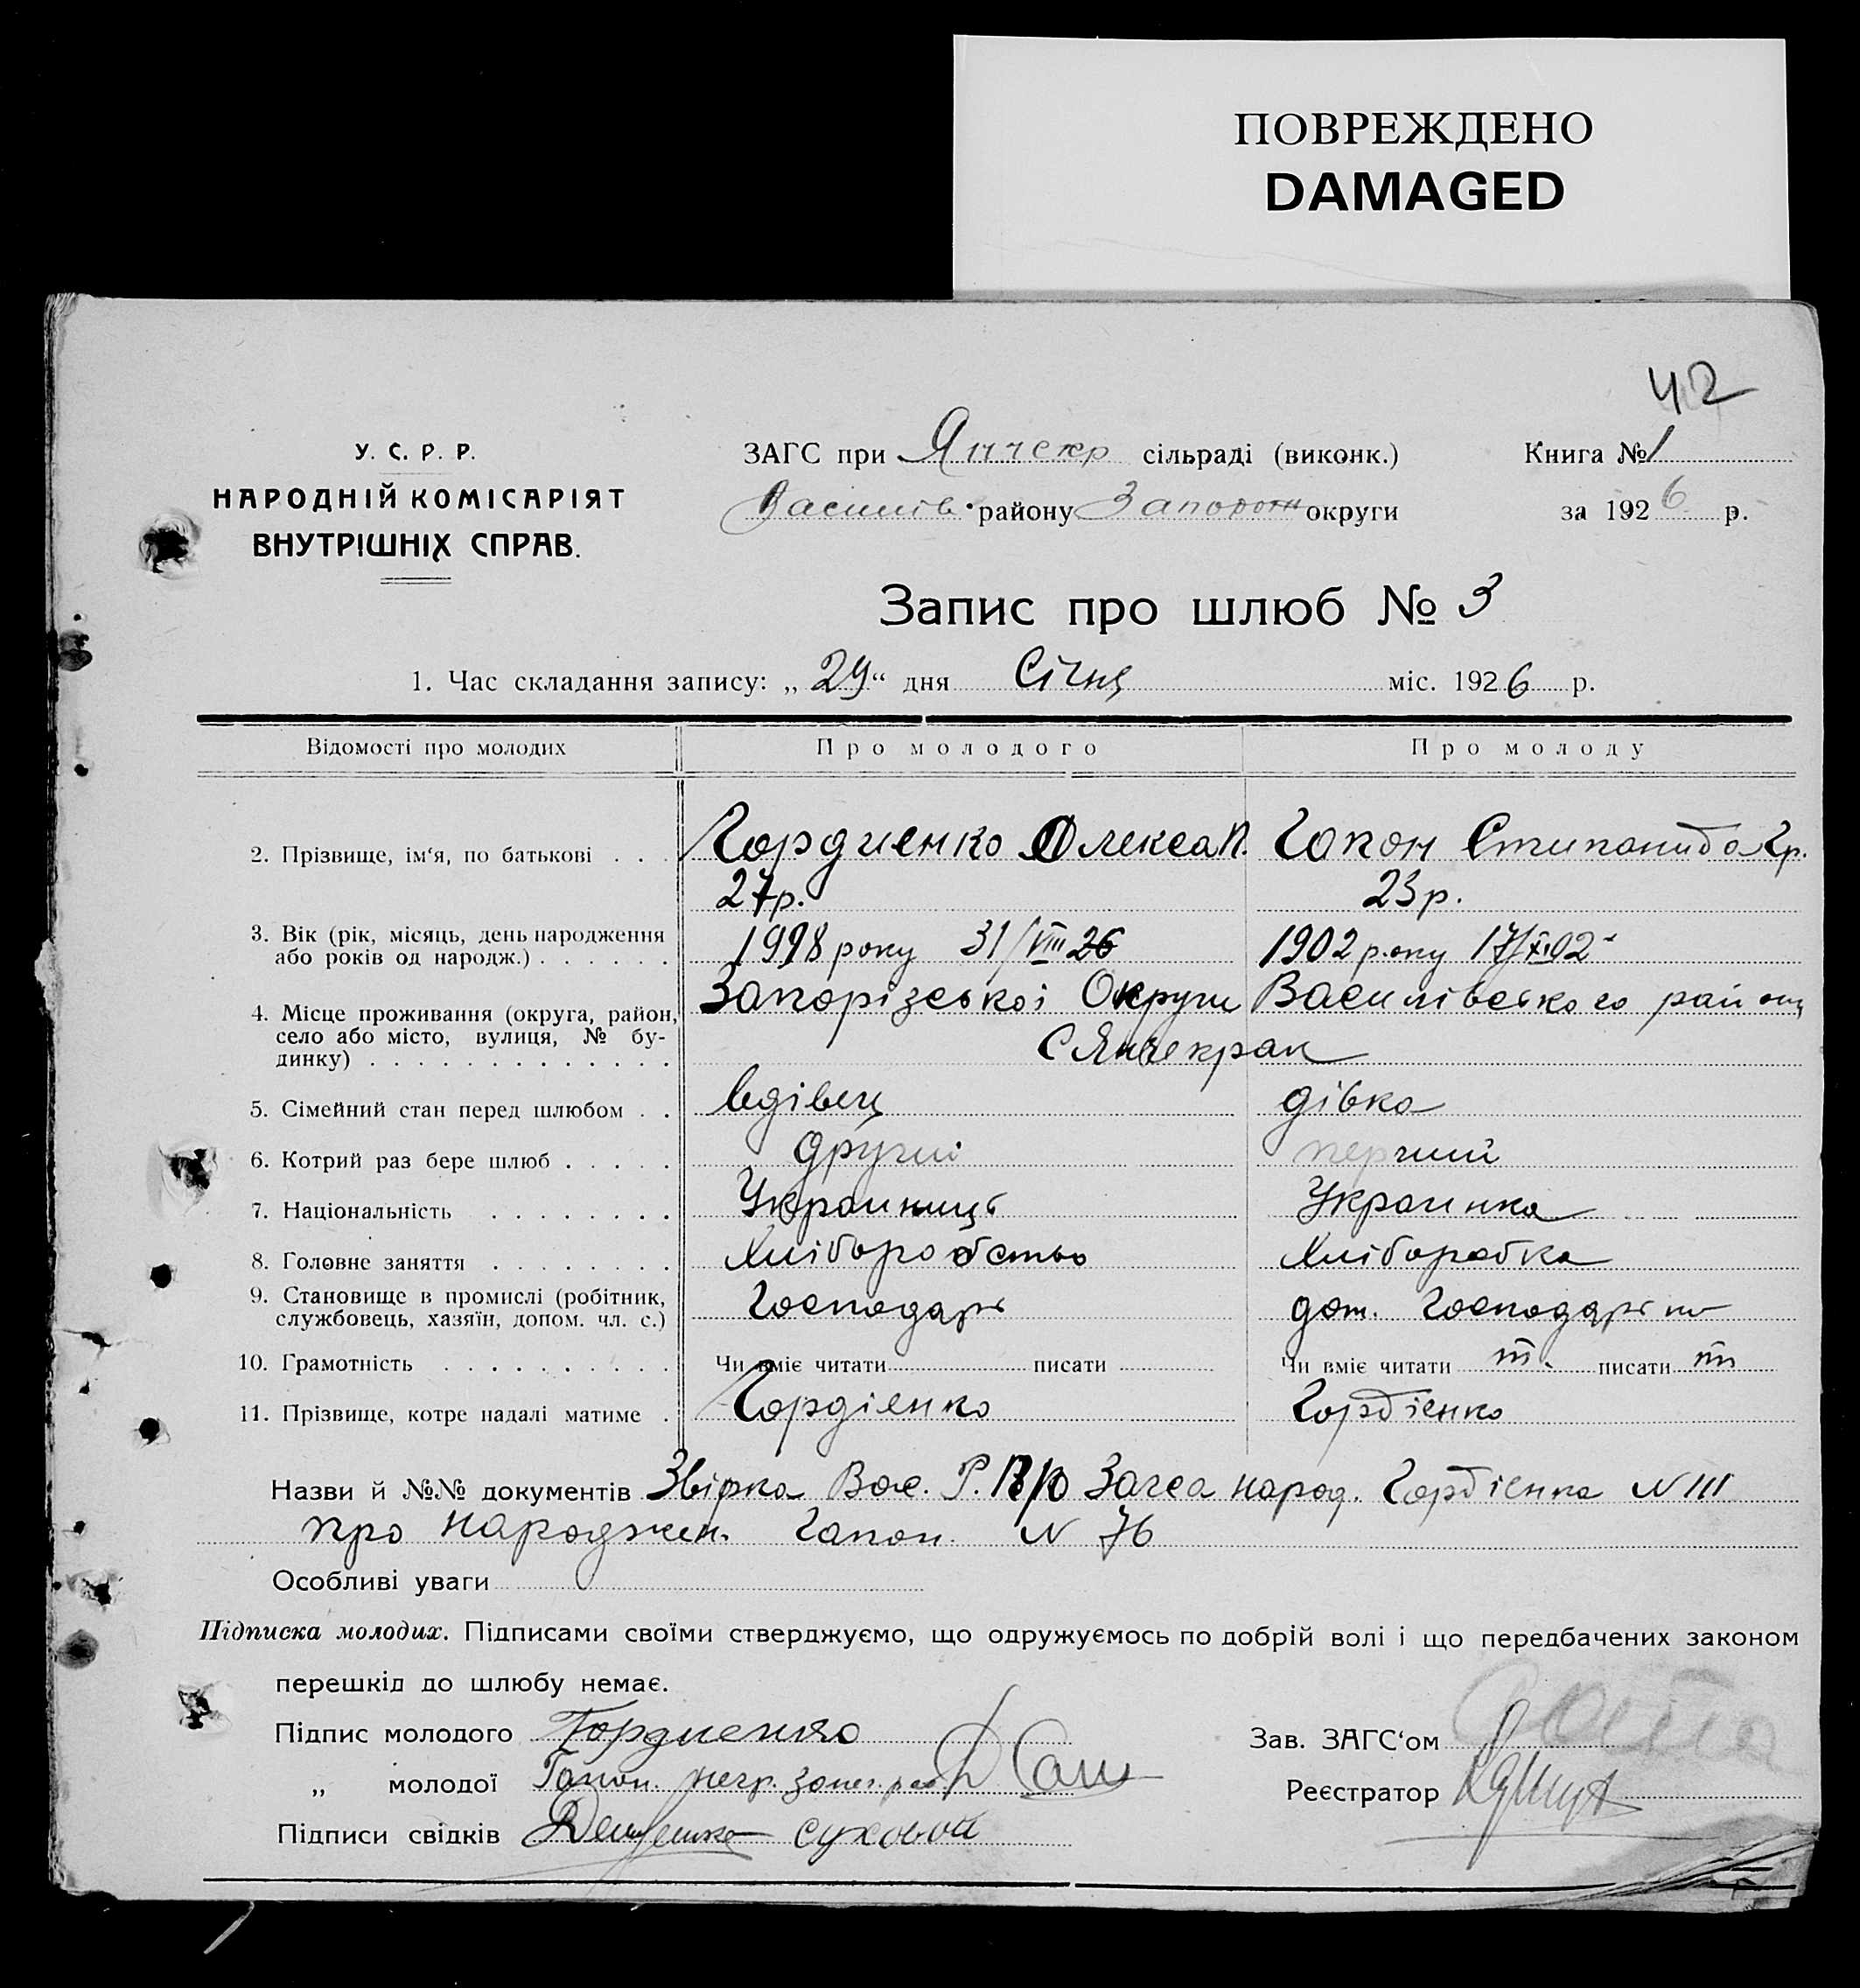 ПОВРЕЖДЕНО
DAMAGED
42
У. С. Р. Р.
НАРОДНІЙ КОМІСАРІЯТ
ВНУТРІШНІХ СПРАВ.
ЗАГС при Янчекр сільраді (виконк.)
Василів. району Запорож округи
Книга № 1
за 1926 р.
Запис про шлюб № 3
1. Час складання запису: „ 29 “ дня Січня міс. 1926 р.
Відомості про молодих Про молодого Про молоду
2. Прізвище, ім‘я, по батькові . . . Гордиенко Олексан. Гапон Стипанида Гр.
27р. 23р.
3. Вік (рік, місяць, день народження
або років од народж.) . . . . . . 1998 року 31/VIII 26 1902 року 17/XI 02
4. Місце проживання (округа, район, Запорізської Округи Василівського району
село або місто, вулиця, № бу-
динку) . . . . . . . . . . . . . С Янчекрак
5. Сімейний стан перед шлюбом . . вдівец дівка
6. Котрий раз бере шлюб . . . . . другий перший
7. Національність . . . . . . . . Украиниць Украинка
8. Головне заняття . . . . . . . . Хліборобство Хліборобка
9. Становище в промислі (робітник,
службовець, хазяїн, допом. чл. с.) Господарь дом. Господарь
10. Грамотність . . . . . . . . . . Чи вміє читати писати Чи вміє читати писати
11. Прізвище, котре надалі матиме . Гордіенко Гордіенко
Назви й №№ документів Звірка Вас. Загса народ. Гордіенка N 111
про народжен. Гапон. N 76
Особливі уваги
Підписка молодих. Підписами своїми стверджуємо, що одружуємось по добрій волі і що передбачених законом
перешкід до шлюбу немає.
Підпис молодого Гордиенко
„ молодої Гапон негр.
Підписи свідків Суховой
Зав. ЗАГС‘ом
Реєстратор